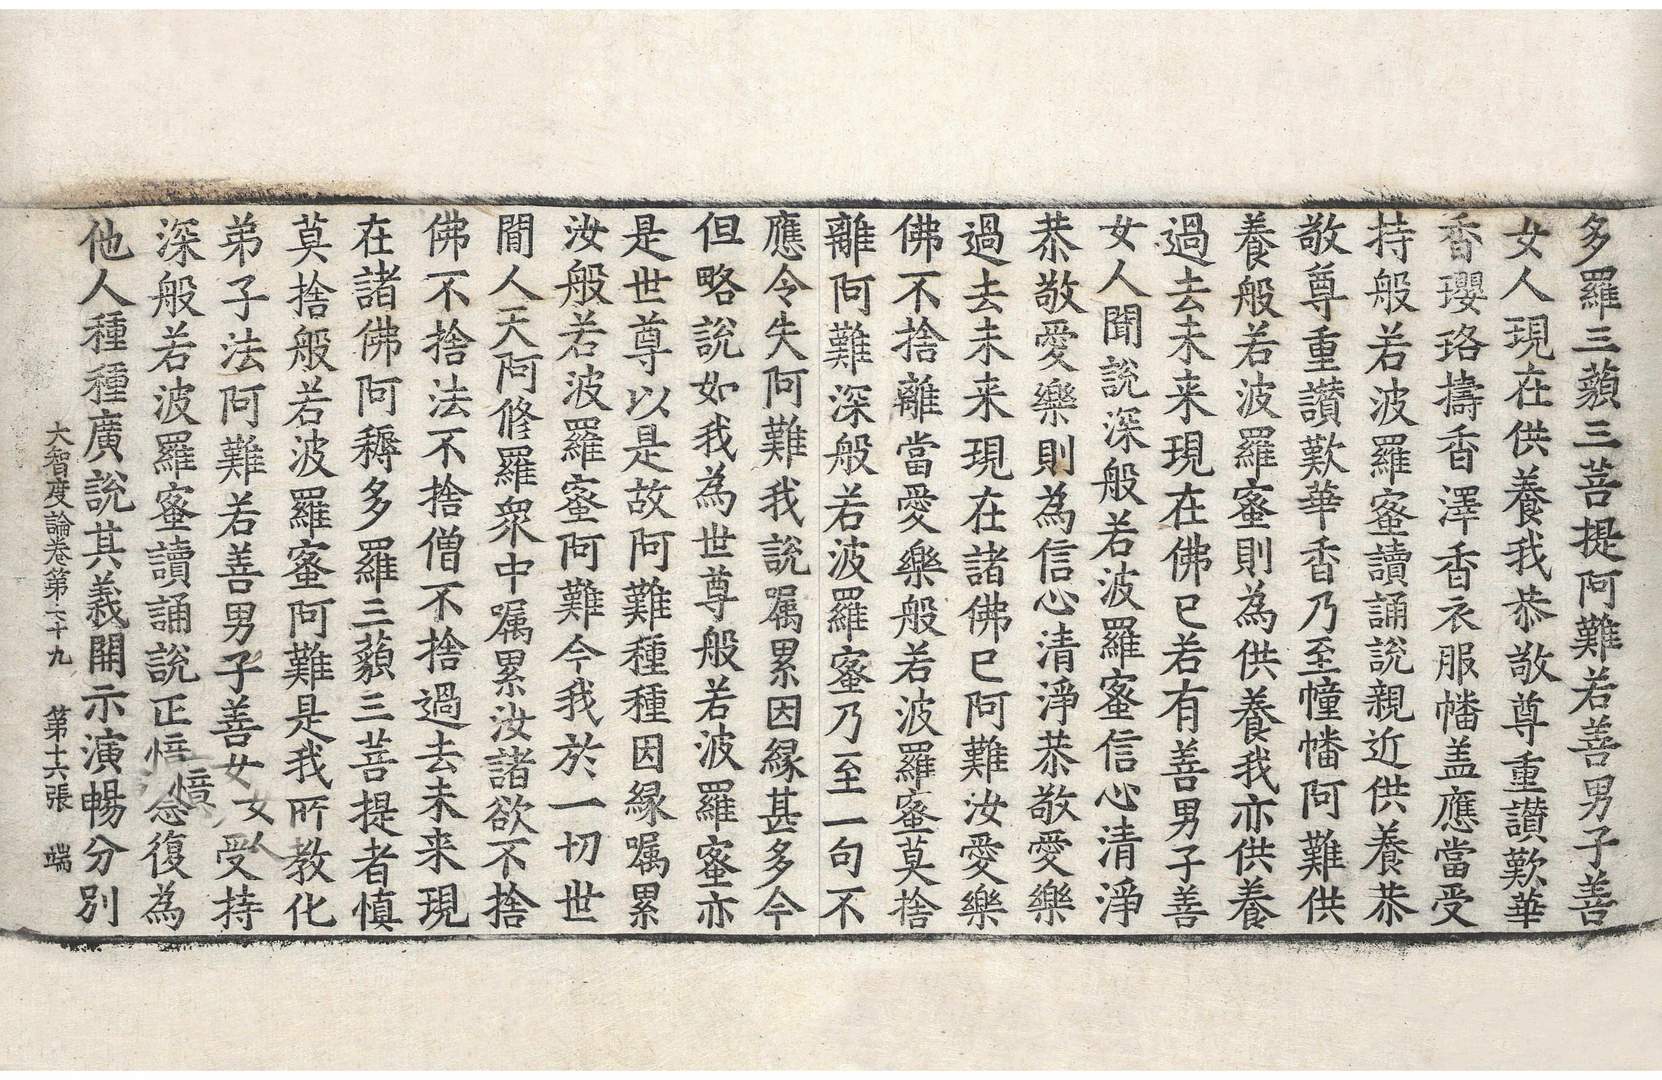 多羅三藐三菩提阿難若善男子善
女人現在供養我恭敬尊重讃歎華
香瓔珞擣香澤香衣服幡盖應當受
持般若波羅蜜讀誦說親近供養恭
敬尊重讃歎華香乃至幢幡阿難供
養般若波羅蜜則為供養我亦供養
過去未来現在佛已若有善男子善
女人聞說深般若波羅蜜信心清淨
恭敬愛樂則為信心清淨恭敬愛樂
過去未来現在諸佛已阿難汝愛樂
佛不捨離當愛樂般若波羅蜜莫捨
離阿難深般若波羅蜜乃至一句不
應令失阿難我說囑累因縁甚多今
但略說如我為世尊般若波羅蜜亦
是世尊以是故阿難種種因縁囑累
汝般若波羅蜜阿難今我於一切世
間人天阿修羅衆中囑累汝諸欲不捨
佛不捨法不捨僧不捨過去未来現
在諸佛阿耨多羅三藐三菩提者慎
莫捨般若波羅蜜阿難是我所教化
弟子法阿難若善男子善女女人受持
深般若波羅蜜讀誦說正憶念復為
他人種種廣說其義開示演暢分別
大智度論卷第六十九 第十六張 端